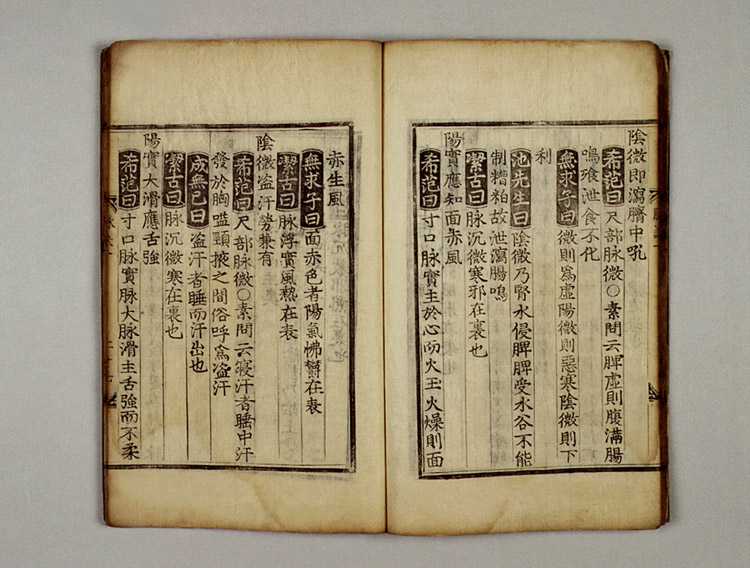 陰微即瀉臍中吼
希范曰尺部脉微○素問云脾虛則腹滿腸
鳴飱泄食不化
無求子曰微則為虛陽微則惡寒陰微則下
利
池先生曰陰微乃腎水侵脾脾受水谷不能
制糟粕故泄瀉腸鳴
潔古曰脉沉微寒邪在裏也
陽實應知面赤風
希范曰寸口脉實主於心而火王火燥則面
赤生風
無求子曰面赤色者陽氣怫欝在表
潔古曰脉浮實風熱在表
陰微盗汗勞兼有
希范曰尺部脉微○素問云寝汗者睡中汗
發於胸嗌頸掖之間俗呼為盗汗
成無己曰盗汗者睡而汗出也
潔古曰脉沉微寒在裏也
陽實大滑應舌強
希范曰寸口脉實脉大脉滑主舌強而不柔